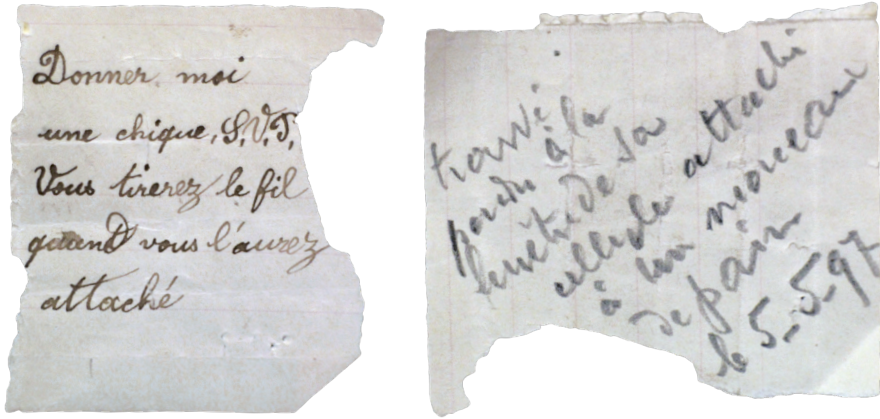 Donner moi
une chique, S.V.P,
Vous tirerez le fil
quand vous l'aurez
attaché
trouvé
pendu à la
fenêtre de sa
cellule attaché
à un morceau
de pain
le 5-5-97